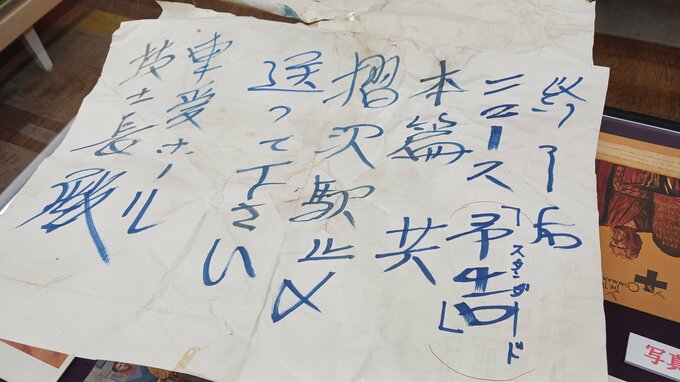 終了后
ニュース「スタンダード
予告」
本篇 共
摺沢駅止メ
送って下さい
ホール
技士長 殿
写真